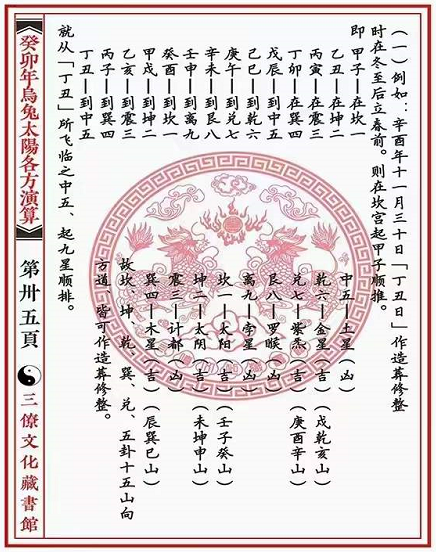 (一)例如:辛酉年十一月三十日「丁丑日」作造葬修整
时在冬至后立春前。则在坎宫起甲子顺推。
即 甲子—在坎一
乙丑—在坤二
丙寅—在震三
丁卯—在巽四
戊辰—到中五
己巳—到乾六
庚午—到兑七
辛未—到艮八
壬申—到离九
癸酉—到坎一
甲戌—到坤二
乙亥—到震三
丙子—到巽四
丁丑—到中五
就从「丁丑」所飞临之中五、起九星顺排。
中五—土星(凶)
乾六—金星(吉)(戌乾亥山)
兑七—紫炁(吉)(庚酉辛山)
艮八—罗睺(凶)
离九—孛星(凶)
坎一—太阳(吉)(壬子癸山)
坤二—太阴(吉)(未坤申山)
震三—计都(凶)
巽四—木星(吉)(辰巽巳山)
故坎、坤、乾、巽、兑、五卦十五山向
方道、皆可作造葬修整。
癸卯年烏兔太陽各方演算
第卅五頁
三僚文化藏書館